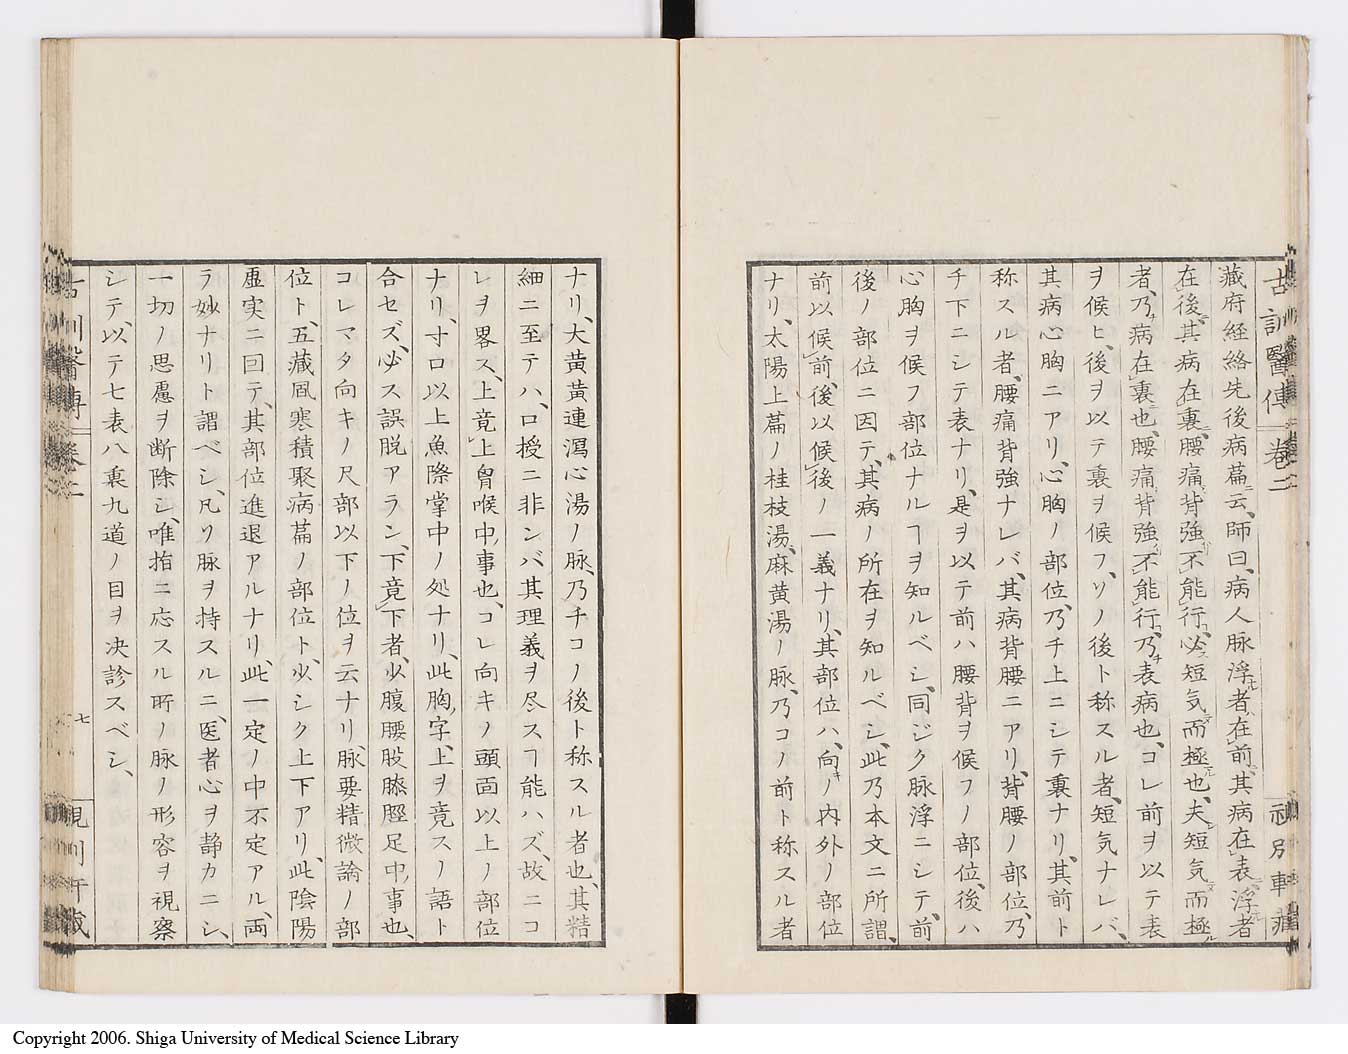 古訓醫傳 卷二
藏府経絡先後病萹云、師曰、病人脉浮者、在前、其病在表、浮者
在後、其病在裏、腰痛背強、不能行、必短気而極也、夫短気而極
者、乃病在裏也、腰痛背強、不能行、乃表病也、コレ前ヲ以テ表
ヲ候ヒ、後ヲ以テ裏ヲ候フ、ソノ後ト称スル者、短気ナレバ、
其病心胸ニアリ、心胸ノ部位、乃チ上ニシテ裏ナリ、其前ト
称スル者、腰痛背強ナレバ、其病背腰ニアリ、背腰ノ部位、乃
チ下ニシテ表ナリ、是ヲ以テ前ハ腰背ヲ候フノ部位、後ハ
心胸ヲ候フ部位ナルヿヲ知ルベシ、同ジク脉浮ニシテ、前
後ノ部位ニ因テ、其病ノ所在ヲ知ルベシ、此乃本文ニ所謂、
前以候前、後以候後ノ一義ナリ、其部位ハ、向キノ内外ノ部位
ナリ、太陽上萹ノ桂枝湯、麻黄湯ノ脉、乃コノ前ト称スル者
ナリ、大黄黄連瀉心湯ノ脉、乃チコノ後ト称スル者也、其精
細ニ至テハ、口授ニ非ンバ其理義ヲ尽スヿ能ハズ、故ニコ
レヲ畧ス、上竟上、胷喉中事也、コレ向キノ頭面以上ノ部位
ナリ、寸口以上魚際掌中ノ処ナリ、此胸字、上ヲ竟スノ語ト
合セズ、必ス誤脱アラン、下竟下者、少腹腰股膝脛足中事也、
コレマタ向キノ尺部以下ノ位ヲ云ナリ、脉要精微論ノ部
位ト、五藏風寒積聚病萹ノ部位ト、少シク上下アリ、此陰陽
虚実ニ因テ、其部位進退アルナリ、此一定ノ中不定アル、両
ラ妙ナリト謂ベシ、凡ソ脉ヲ持スルニ、医者心ヲ静カニシ、
一切ノ思慮ヲ断除シ、唯指ニ応スル所ノ脉ノ形容ヲ視察
シテ、以テ七表八裏九道ノ目ヲ决診スベシ、
七
Copyright 2006. Shiga University of Medical Science Library